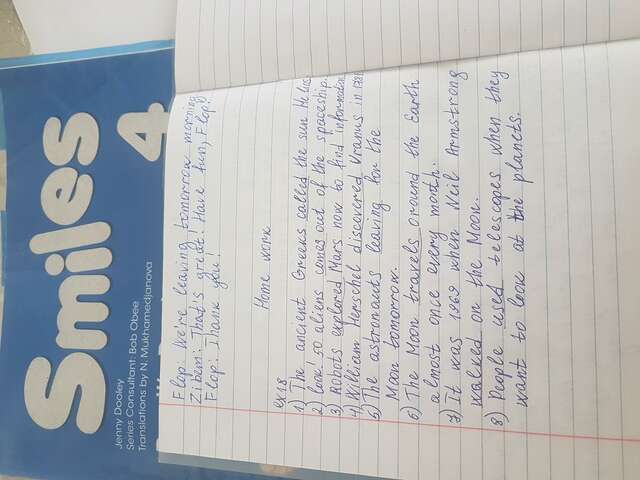 Smiles
4
Jenny Dooley
Series Consultant: Bob Obee
Translations by N. Mukhamedjanova
Flop: We're leaving tomorrow morning
Zibem: That's great! Have fun, Flop!
Flop: Thank you!
Home work
ex 18
1) The ancient Greeks called the sun He lios
2) look so aliens comes out of the spaceship.
3) Robots explored Mars now to find information
4) William Herschel discovered Uranus in 1781
5) The astronauts leaving for the
Moon tomorrow.
6) The Moon travels around the Earth
almost once every month.
7) It was 1969 when Neil Armstrong
walked on the Moon.
8) People used telescopes when they
want to look at the planets.